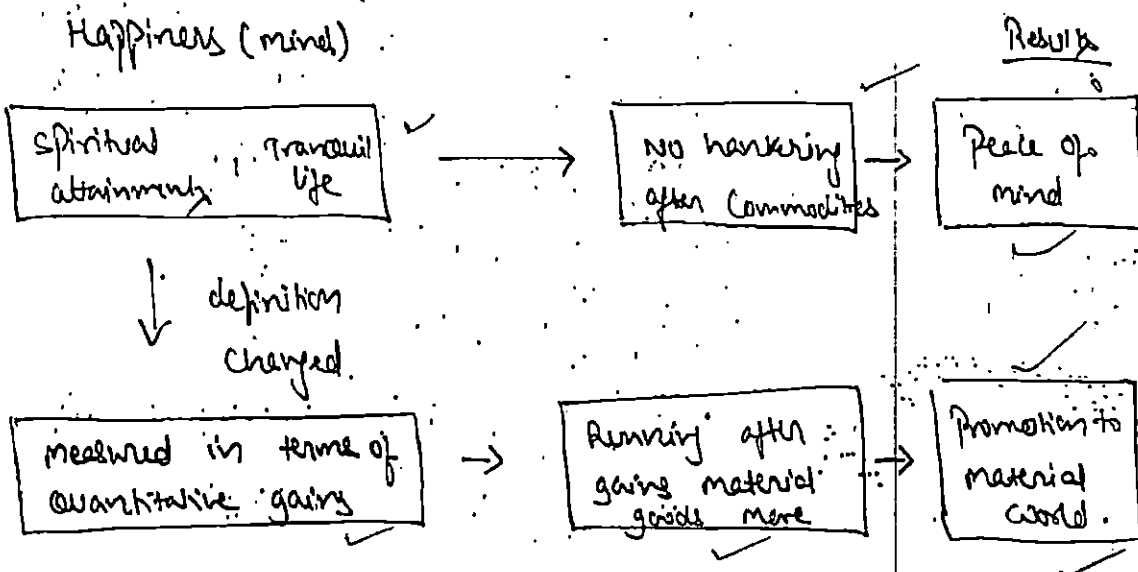 Happiness (mind)
Results
Spiritual attainments, Tranquil life
No hankering
after Commodites
Peace of
mind
definition
changed.
measured in terms of
Quantitative gains
Running after
gains material
goods more
Promotion to
material
world.